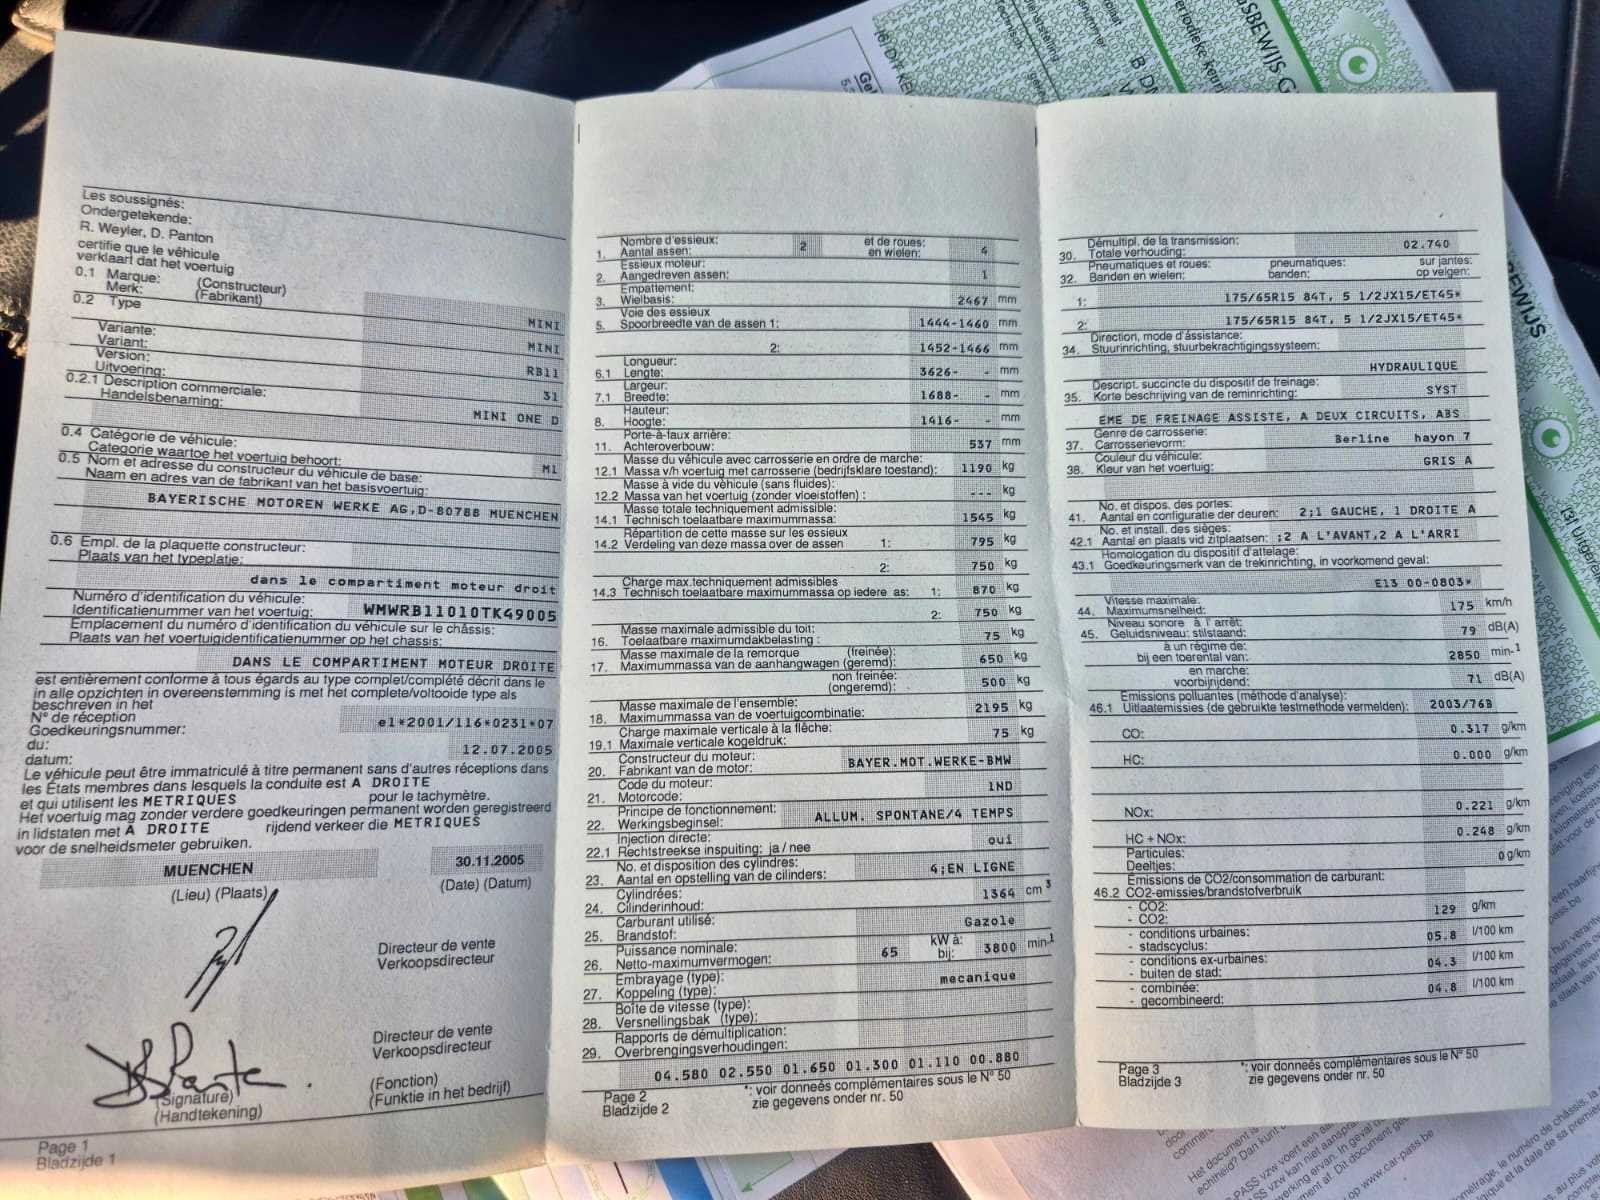 Les soussignés:
Ondergetekende:
R. Weyler, D. Panton
certifie que le véhicule
verklaart dat het voertuig
0.1 Marque: (Constructeur)
Merk: (Fabrikant)
MINI
0.2 Type
MINI
Variante:
Variant:
RB11
Version:
Uitvoering:
31
0.2.1 Description commerciale:
Handelsbenaming:
MINI ONE D
0.4 Catégorie de véhicule:
Categorie waartoe het voertuig behoort:
M1
0.5 Nom et adresse du constructeur du véhicule de base:
Naam en adres van de fabrikant van het basisvoertuig:
BAYERISCHE MOTOREN WERKE AG,D-80788 MUENCHEN
0.6 Empl. de la plaquette constructeur:
Plaats van het typeplatie:
dans le compartiment moteur droit
Numéro d'identification du véhicule:
Identificatienummer van het voertuig: WMWRB11010TK49005
Emplacement du numéro d'identification du véhicule sur le châssis:
Plaats van het voertuigidentificatienummer op het chassis:
DANS LE COMPARTIMENT MOTEUR DROITE
est entièrement conforme à tous égards au type complet/complété décrit dans le
in alle opzichten in overeenstemming is met het complete/voltooide type als
beschreven in het
N° de réception
Goedkeuringsnummer: e1*2001/116*0231*07
du:
datum: 12.07.2005
Le véhicule peut être immatriculé à titre permanent sans d'autres réceptions dans
les États membres dans lesquels la conduite est A DROITE
et qui utilisent les METRIQUES pour le tachymètre.
Het voertuig mag zonder verdere goedkeuringen permanent worden geregistreerd
in lidstaten met A DROITE rijdend verkeer die METRIQUES
voor de snelheidsmeter gebruiken.
MUENCHEN 30.11.2005
(Lieu) (Plaats) (Date) (Datum)
Directeur de vente
Verkoopsdirecteur
Directeur de vente
Verkoopsdirecteur
(Fonction)
(Signature) (Funktie in het bedrijf)
(Handtekening)
Page 1
Bladzijde 1
Nombre d'essieux: 2 et de roues: 4
1. Aantal assen: en wielen:
Essieux moteur:
2. Aangedreven assen: 1
Empattement:
3. Wielbasis: 2467 mm
Voie des essieux
5. Spoorbreedte van de assen 1: 1444-1460 mm
2: 1452-1466 mm
Longueur:
6.1 Lengte: 3626- - mm
Largeur:
7.1 Breedte: 1688- - mm
Hauteur:
8. Hoogte: 1416- - mm
Porte-à-faux arrière:
11. Achteroverbouw: 537 mm
Masse du véhicule avec carrosserie en ordre de marche:
12.1 Massa v/h voertuig met carrosserie (bedrijfsklare toestand): 1190 kg
Masse à vide du véhicule (sans fluides):
12.2 Massa van het voertuig (zonder vloeistoffen) : --- kg
Masse totale techniquement admissible:
14.1 Technisch toelaatbare maximummassa: 1545 kg
Répartition de cette masse sur les essieux
14.2 Verdeling van deze massa over de assen 1: 795 kg
2: 750 kg
Charge max.techniquement admissibles
14.3 Technisch toelaatbare maximummassa op iedere as: 1: 870 kg
2: 750 kg
Masse maximale admissible du toit:
16. Toelaatbare maximumdakbelasting : 75 kg
Masse maximale de la remorque (freinée):
17. Maximummassa van de aanhangwagen (geremd): 650 kg
non freinée:
(ongeremd): 500 kg
Masse maximale de l'ensemble:
18. Maximummassa van de voertuigcombinatie: 2195 kg
Charge maximale verticale à la flèche:
19.1 Maximale verticale kogeldruk: 75 kg
Constructeur du moteur:
20. Fabrikant van de motor: BAYER.MOT.WERKE-BMW
Code du moteur:
21. Motorcode: 1ND
Principe de fonctionnement:
22. Werkingsbeginsel: ALLUM. SPONTANE/4 TEMPS
Injection directe:
22.1 Rechtstreekse inspuiting: ja / nee oui
No. et disposition des cylindres:
23. Aantal en opstelling van de cilinders: 4;EN LIGNE
Cylindrées:
24. Cilinderinhoud: 1364 cm³
Carburant utilisé:
25. Brandstof: Gazole
Puissance nominale: kW à:
26. Netto-maximumvermogen: 65 bij: 3800 min-1
Embrayage (type):
27. Koppeling (type): mecanique
Boîte de vitesse (type):
28. Versnellingsbak (type):
Rapports de démultiplication:
29. Overbrengingsverhoudingen:
04.580 02.550 01.650 01.300 01.110 00.880
Page 2 *: voir donneés complémentaires sous le N° 50
Bladzijde 2 zie gegevens onder nr. 50
Démultipl. de la transmission:
30. Totale verhouding: 02.740
Pneumatiques et roues: pneumatiques: sur jantes:
32. Banden en wielen: banden: op velgen:
1: 175/65R15 84T, 5 1/2JX15/ET45*
2: 175/65R15 84T, 5 1/2JX15/ET45*
Direction, mode d'ássistance:
34. Stuurinrichting, stuurbekrachtigingssysteem:
HYDRAULIQUE
Descript. succincte du dispositif de freinage:
35. Korte beschrijving van de reminrichting: SYST
EME DE FREINAGE ASSISTE, A DEUX CIRCUITS, ABS
Genre de carrosserie:
37. Carrosserievorm: Berline hayon 7
Couleur du véhicule:
38. Kleur van het voertuig: GRIS A
No. et dispos. des portes:
41. Aantal en configuratie der deuren: 2;1 GAUCHE, 1 DROITE A
No. et install. des sièges:
42.1 Aantal en plaats vid zitplaatsen: ;2 A L'AVANT,2 A L'ARRI
Homologation du dispositif d'attelage:
43.1 Goedkeuringsmerk van de trekinrichting, in voorkomend geval:
E13 00-0803*
Vitesse maximale:
44. Maximumsnelheid: 175 km/h
Niveau sonore à l'arrêt:
45. Geluidsniveau: stilstaand: 79 dB(A)
à un régime de:
bij een toerental van: 2850 min-1
en marche:
voorbijrijdend: 71 dB(A)
Emissions polluantes (méthode d'analyse):
46.1 Uitlaatemissies (de gebruikte testmethode vermelden): 2003/76B
CO: 0.317 g/km
HC: 0.000 g/km
NOx: 0.221 g/km
HC + NOx: 0.248 g/km
Particules:
Deeltjes: 0 g/km
Émissions de CO2/consommation de carburant:
46.2 CO2-emissies/brandstofverbruik
- CO2:
- CO2: 129 g/km
- conditions urbaines:
- stadscyclus: 05.8 l/100 km
- conditions ex-urbaines:
- buiten de stad: 04.3 l/100 km
- combinée:
- gecombineerd: 04.8 l/100 km
Page 3 *: voir donneés complémentaires sous le N° 50
Bladzijde 3 zie gegevens onder nr. 50